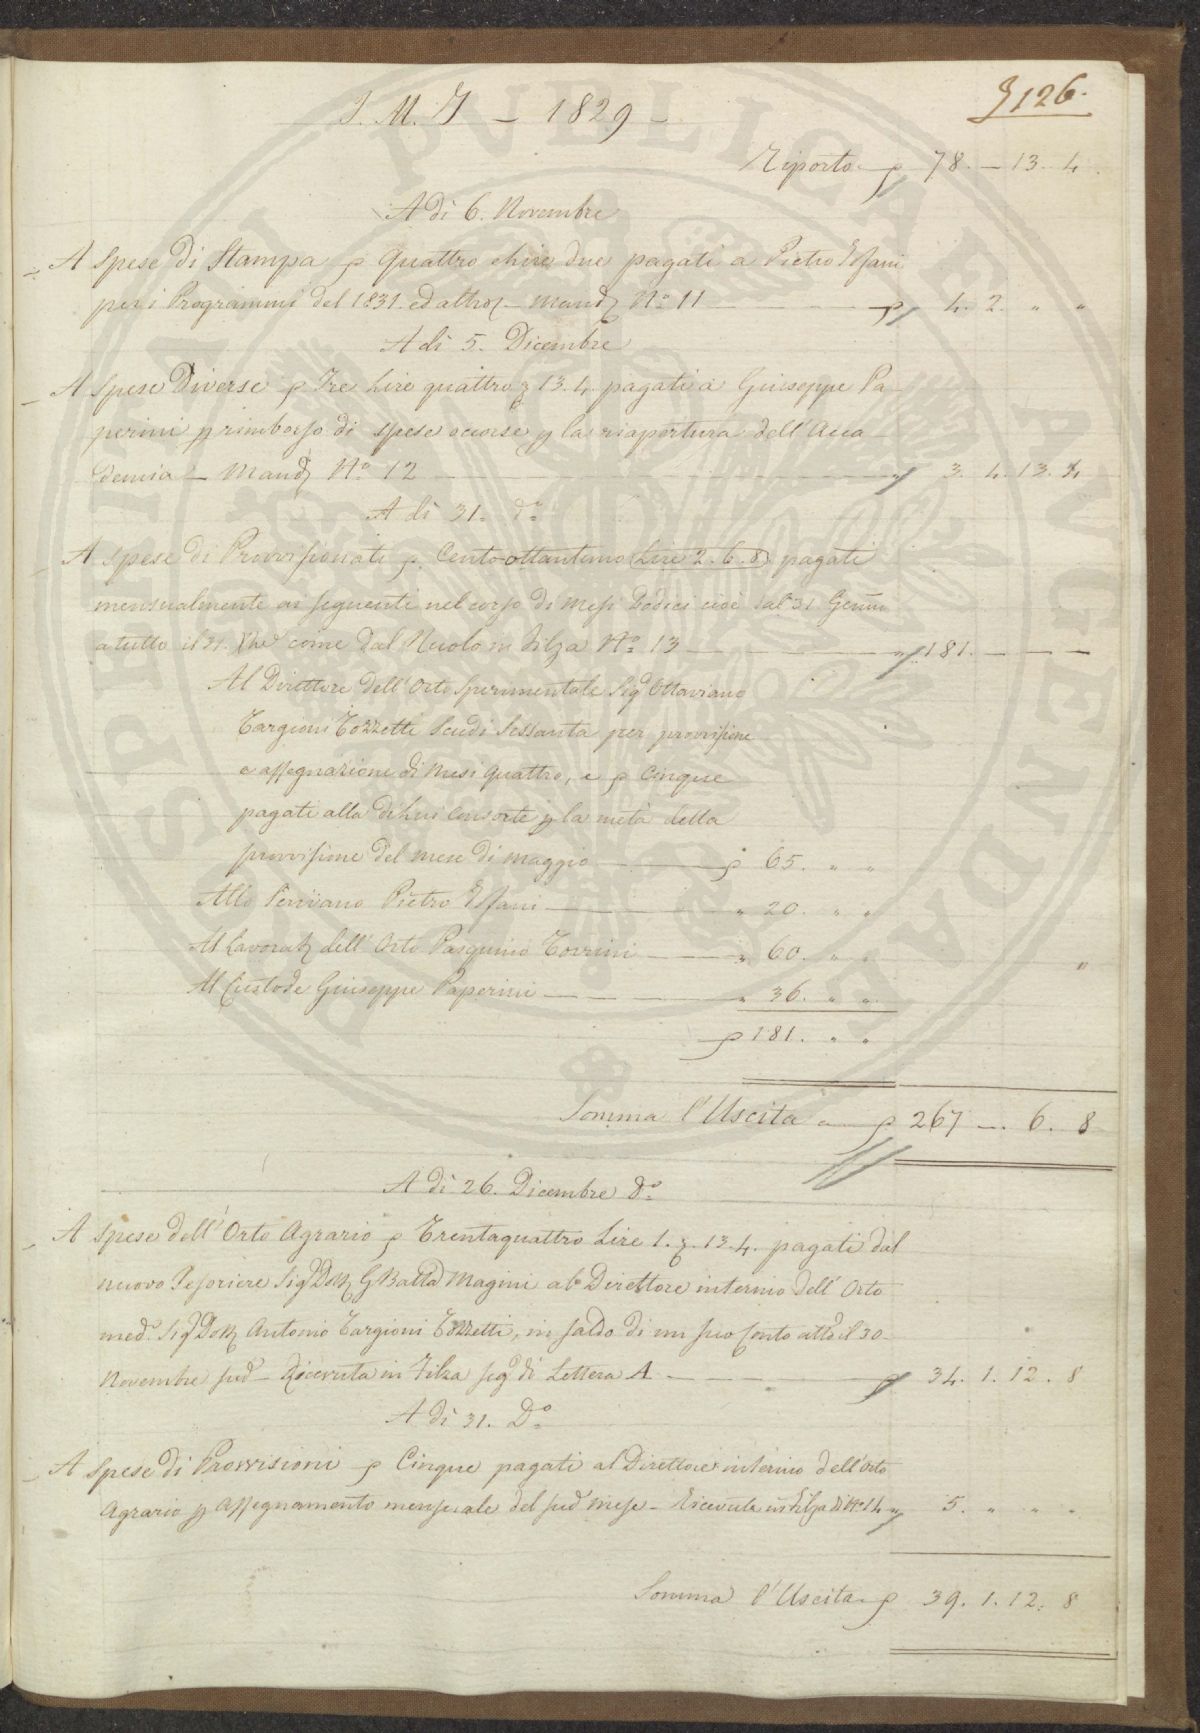 126.
I. M. I - 1829 -
Riporto 78. - 13. 4
A dì 6. Novembre
A Spese di Stampa Quattro Lire due pagati a Pietro
per i Programmi del 1831. ed altro - Mand. N.o 11 4. 2. " "
A dì 5. Dicembre
A Spese Diverse Tre Lire quattro 13. 4. pagati a Giuseppe Pa
perini p rimborso di spese occorse p la riapertura dell' Acca
demia - Mand. N.o 12 3. 4. 13. 4
A dì 31. d.o
A Spese di Provvisionati Centottantuno (Lire 2. 6. 8) pagati
mensualmente ai seguenti nel corso di Mesi Dodici cioè dal 31 Genn.
a tutto il 31. come dal Ruolo in Filza N.o 13 " 181. - -
Al Direttore dell' Orto Sperimentale Sig. Ottaviano
Targioni Tozzetti Scudi Sessanta per provvisione
e assegnazione di Mesi quattro, e Cinque
pagati alla di Lui Consorte p la metà della
provvisione del mese di Maggio 65. " "
Allo Scrivano Pietro " 20. " "
Al Lavorat. dell' Orto Pasquino Torrini " 60. " "
"
Al Custode Giuseppe Paperini " 36. " "
181. " "
Somma l' Uscita 267 - 6. 8
A dì 26. Dicembre d.o
A Spese dell' Orto Agrario Trentaquattro Lire 1. 13. 4. pagati dal
nuovo Tesoriere Sig. Dott. G. Batta Magini al Direttore interino dell' Orto
med.o Sig. Dott. Antonio Targioni Tozzetti, in saldo di un suo Conto a tutto il 30
Novembre sud.o - Ricevuta in Filza seg. di Lettera A. 34. 1. 12. 8
A dì 31. D.o
A Spese di Provvisioni Cinque pagati al Direttore interino dell' Orto
Agrario p Assegnamento mensuale del sud.o mese - Ricevuta in Filza di N.o 14 " 5. " " "
Somma l' Uscita 39. 1. 12. 8
PROSPERITATI PUBLICAE AUGENDAE